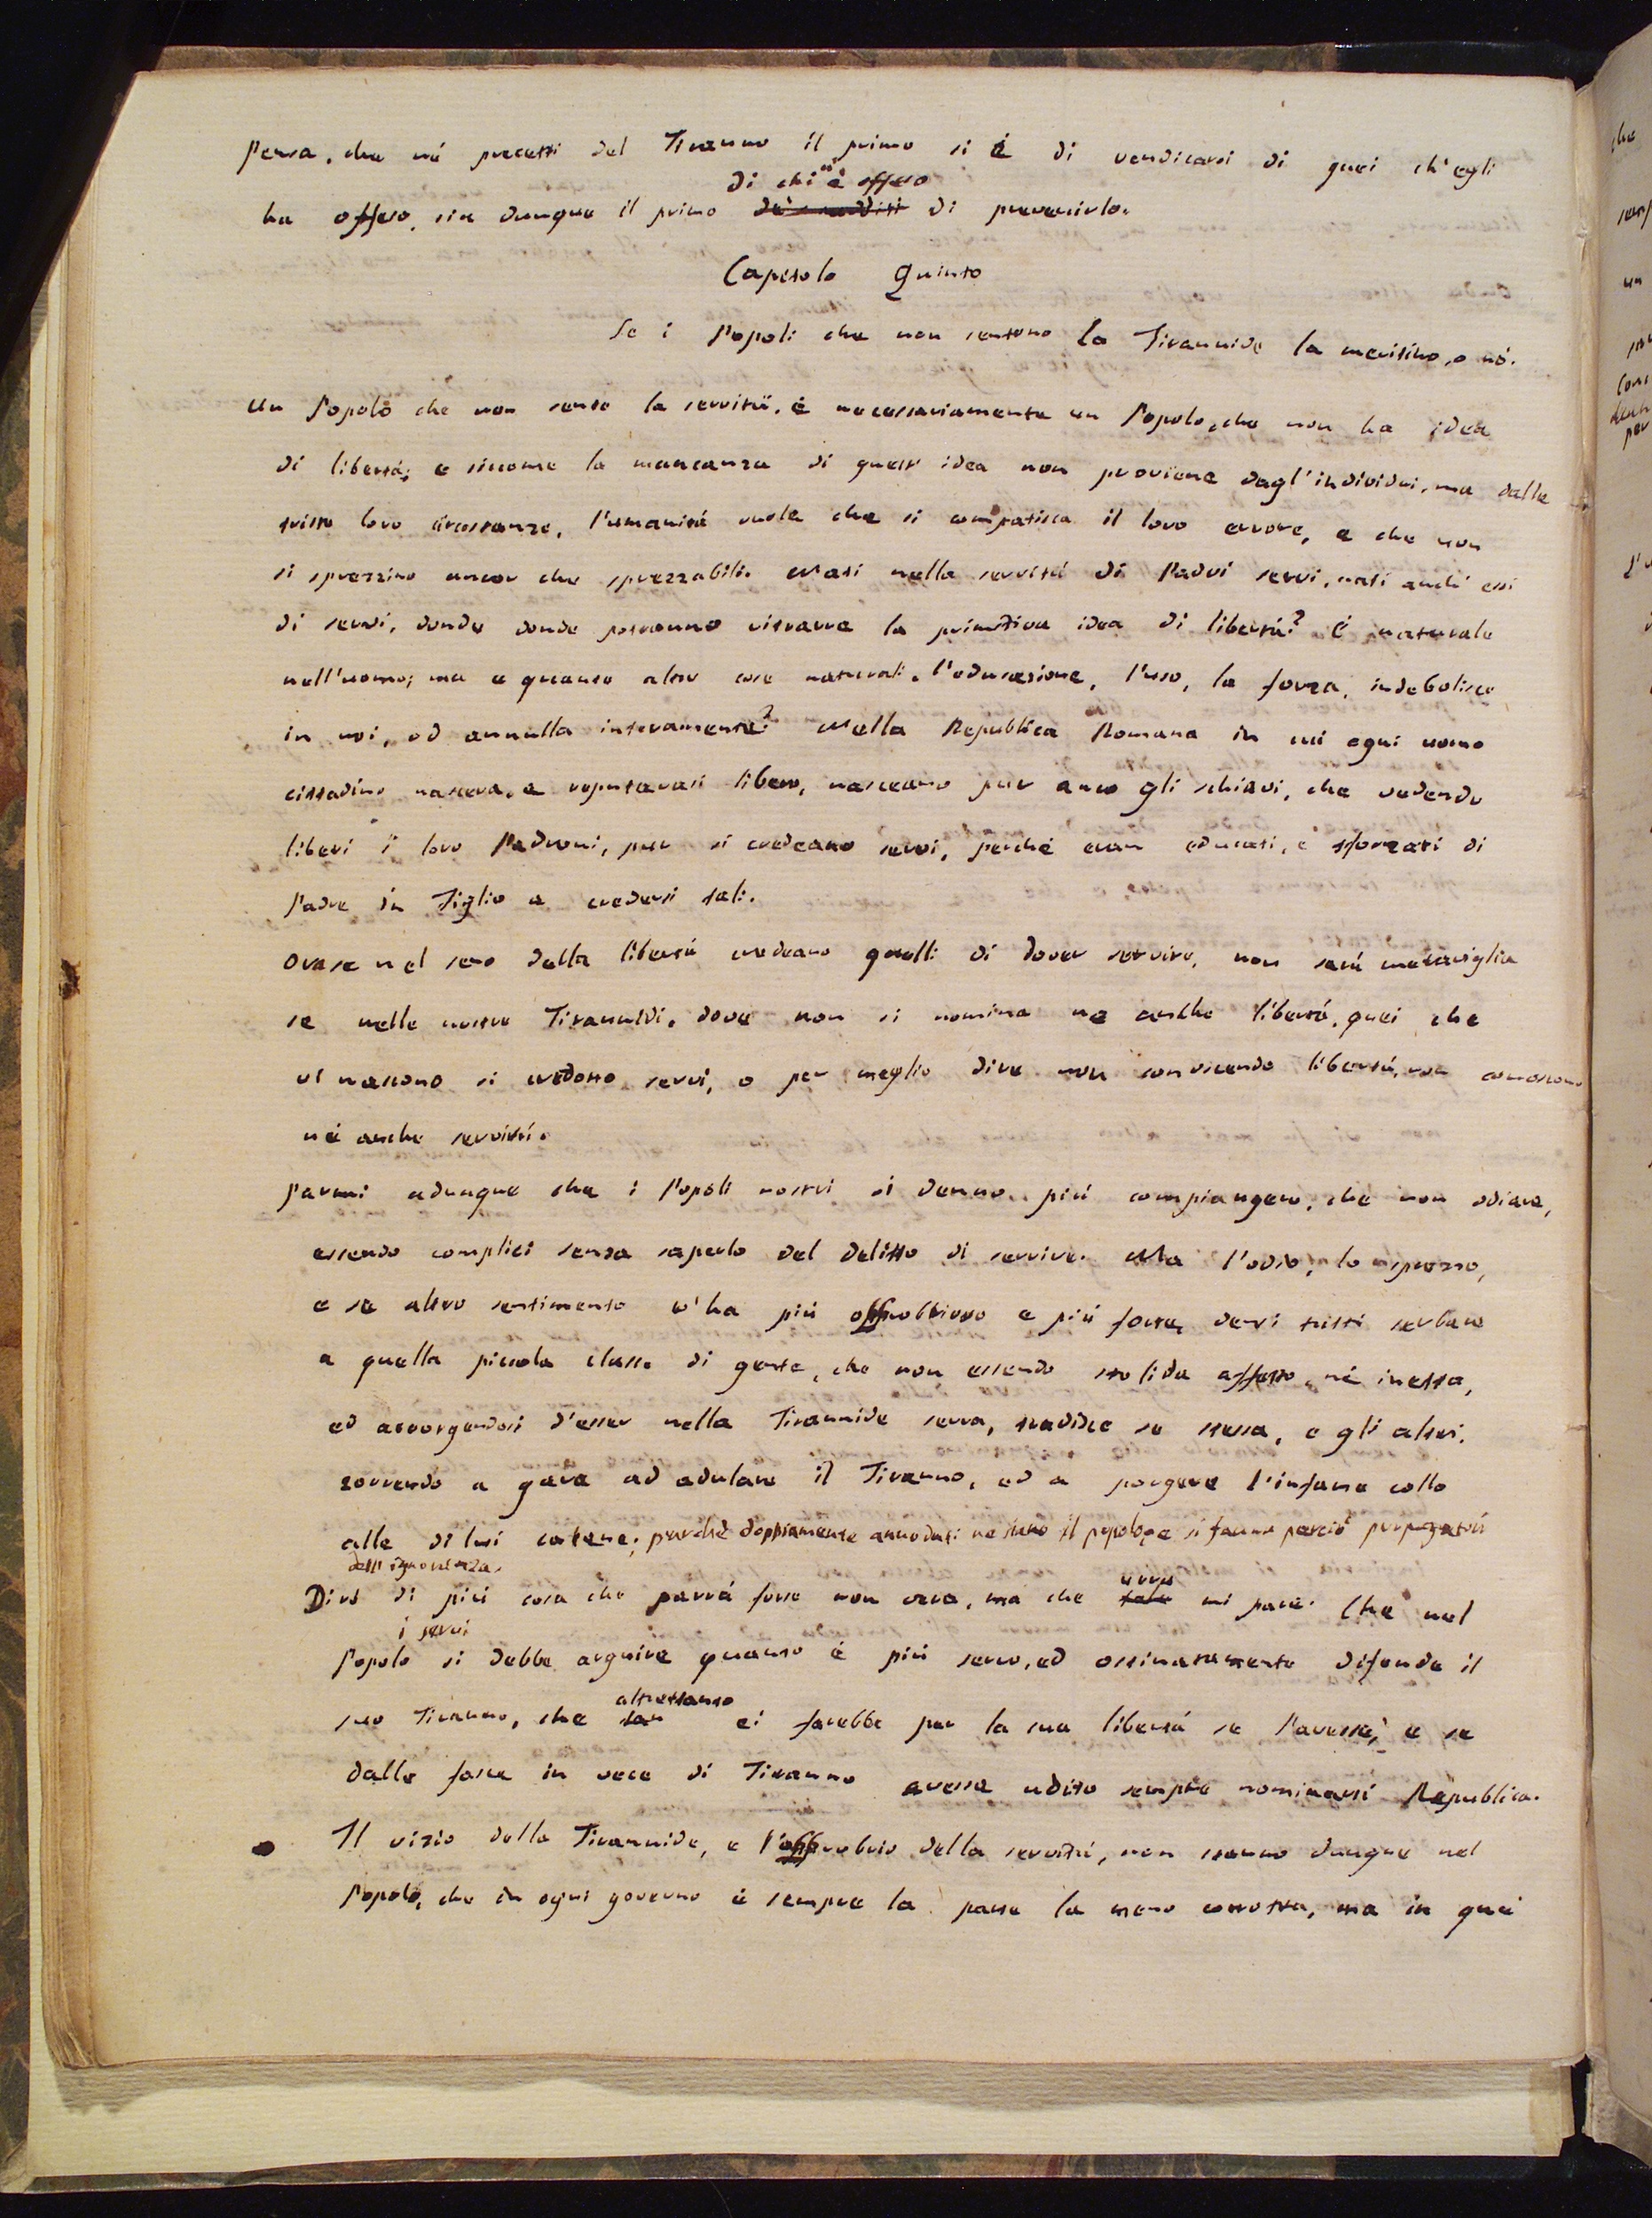 Pensa, che né precetti del Tiranno il primo si è di vendicarsi di quei ch'egli
di chi n'è offeso
ha offeso, sia dunque il primo di prevenirlo.
Capitolo Quinto
Se i Popoli che non sentono la Tirannide la meritino, o nò.
Un Popolo che non sente la servitù, è necessariamente un Popolo, che non ha idea
di libertà; e siccome la mancanza di quest' idea non proviene dagl'individui, ma dalle
triste loro circostanze, l'umanità vuole che si compatisca il loro errore, e che non
si sprezzino ancor che sprezzabili. Nati nella servitù di Padri servi, nati anch' essi
di servi, donde donde potranno ritrarre la primitiva idea di libertà? È naturale
nell'uomo; ma e quante altre cose naturali, l'educazione, l'uso, la forza, indebolisce
in noi, od annulla interamente? Nella Republica Romana in cui ogni uomo
cittadino nasceva, e reputavasi libero, nasceano pur anco gli schiavi, che vedendo
liberi i loro Padroni, pur si credeano servi, perché eran educati, e sforzati di
Padre in Figlio a credersi tali.
Ora se nel seno della libertà credeano quelli di dover servire, non sarà meraviglia
se nelle nostre Tirannidi, dove non si nomina ne anche libertà, quei che
vi nascono si credono servi, o per meglio dire non conoscendo libertà, non conoscono
né anche servitù.
Parmi adunque che i Popoli nostri si denno più compiangere, che non odiare,
essendo complici senza saperlo del delitto di servire. Ma l'odio, lo sprezzo,
e se altro sentimento v'ha più obbrobrioso e più forte, densi tutti serbare
a quella piccola classe di gente, che non essendo stolida affatto, né inetta,
ed accorgendosi d'esser nella Tirannide serva, tradisce se stessa, e gli altri,
correndo a gara ad adulare il Tiranno, ed a porgere l'infame collo
alle di lui catene; perché doppiamente annodati ne siano il popolo, e si fanno perciò propagatori
dell'ignoranza.
Dirò di più cosa che parrà forse non vera, ma che vera mi pare. Che nel
i servi
Popolo si debbe arguire quanto è più servo, ed ostinatamente difende il
suo Tiranno, che altrettanto ei farebbe per la sua libertà se l'avesse, e se
dalle fasce in vece di Tiranno avesse udito sempre nominarsi Republica.
Il vizio della Tirannide, e l'obbrobrio della servitù, non stanno dunque nel
Popolo, che in ogni governo è sempre la parte la meno corrotta, ma in quei